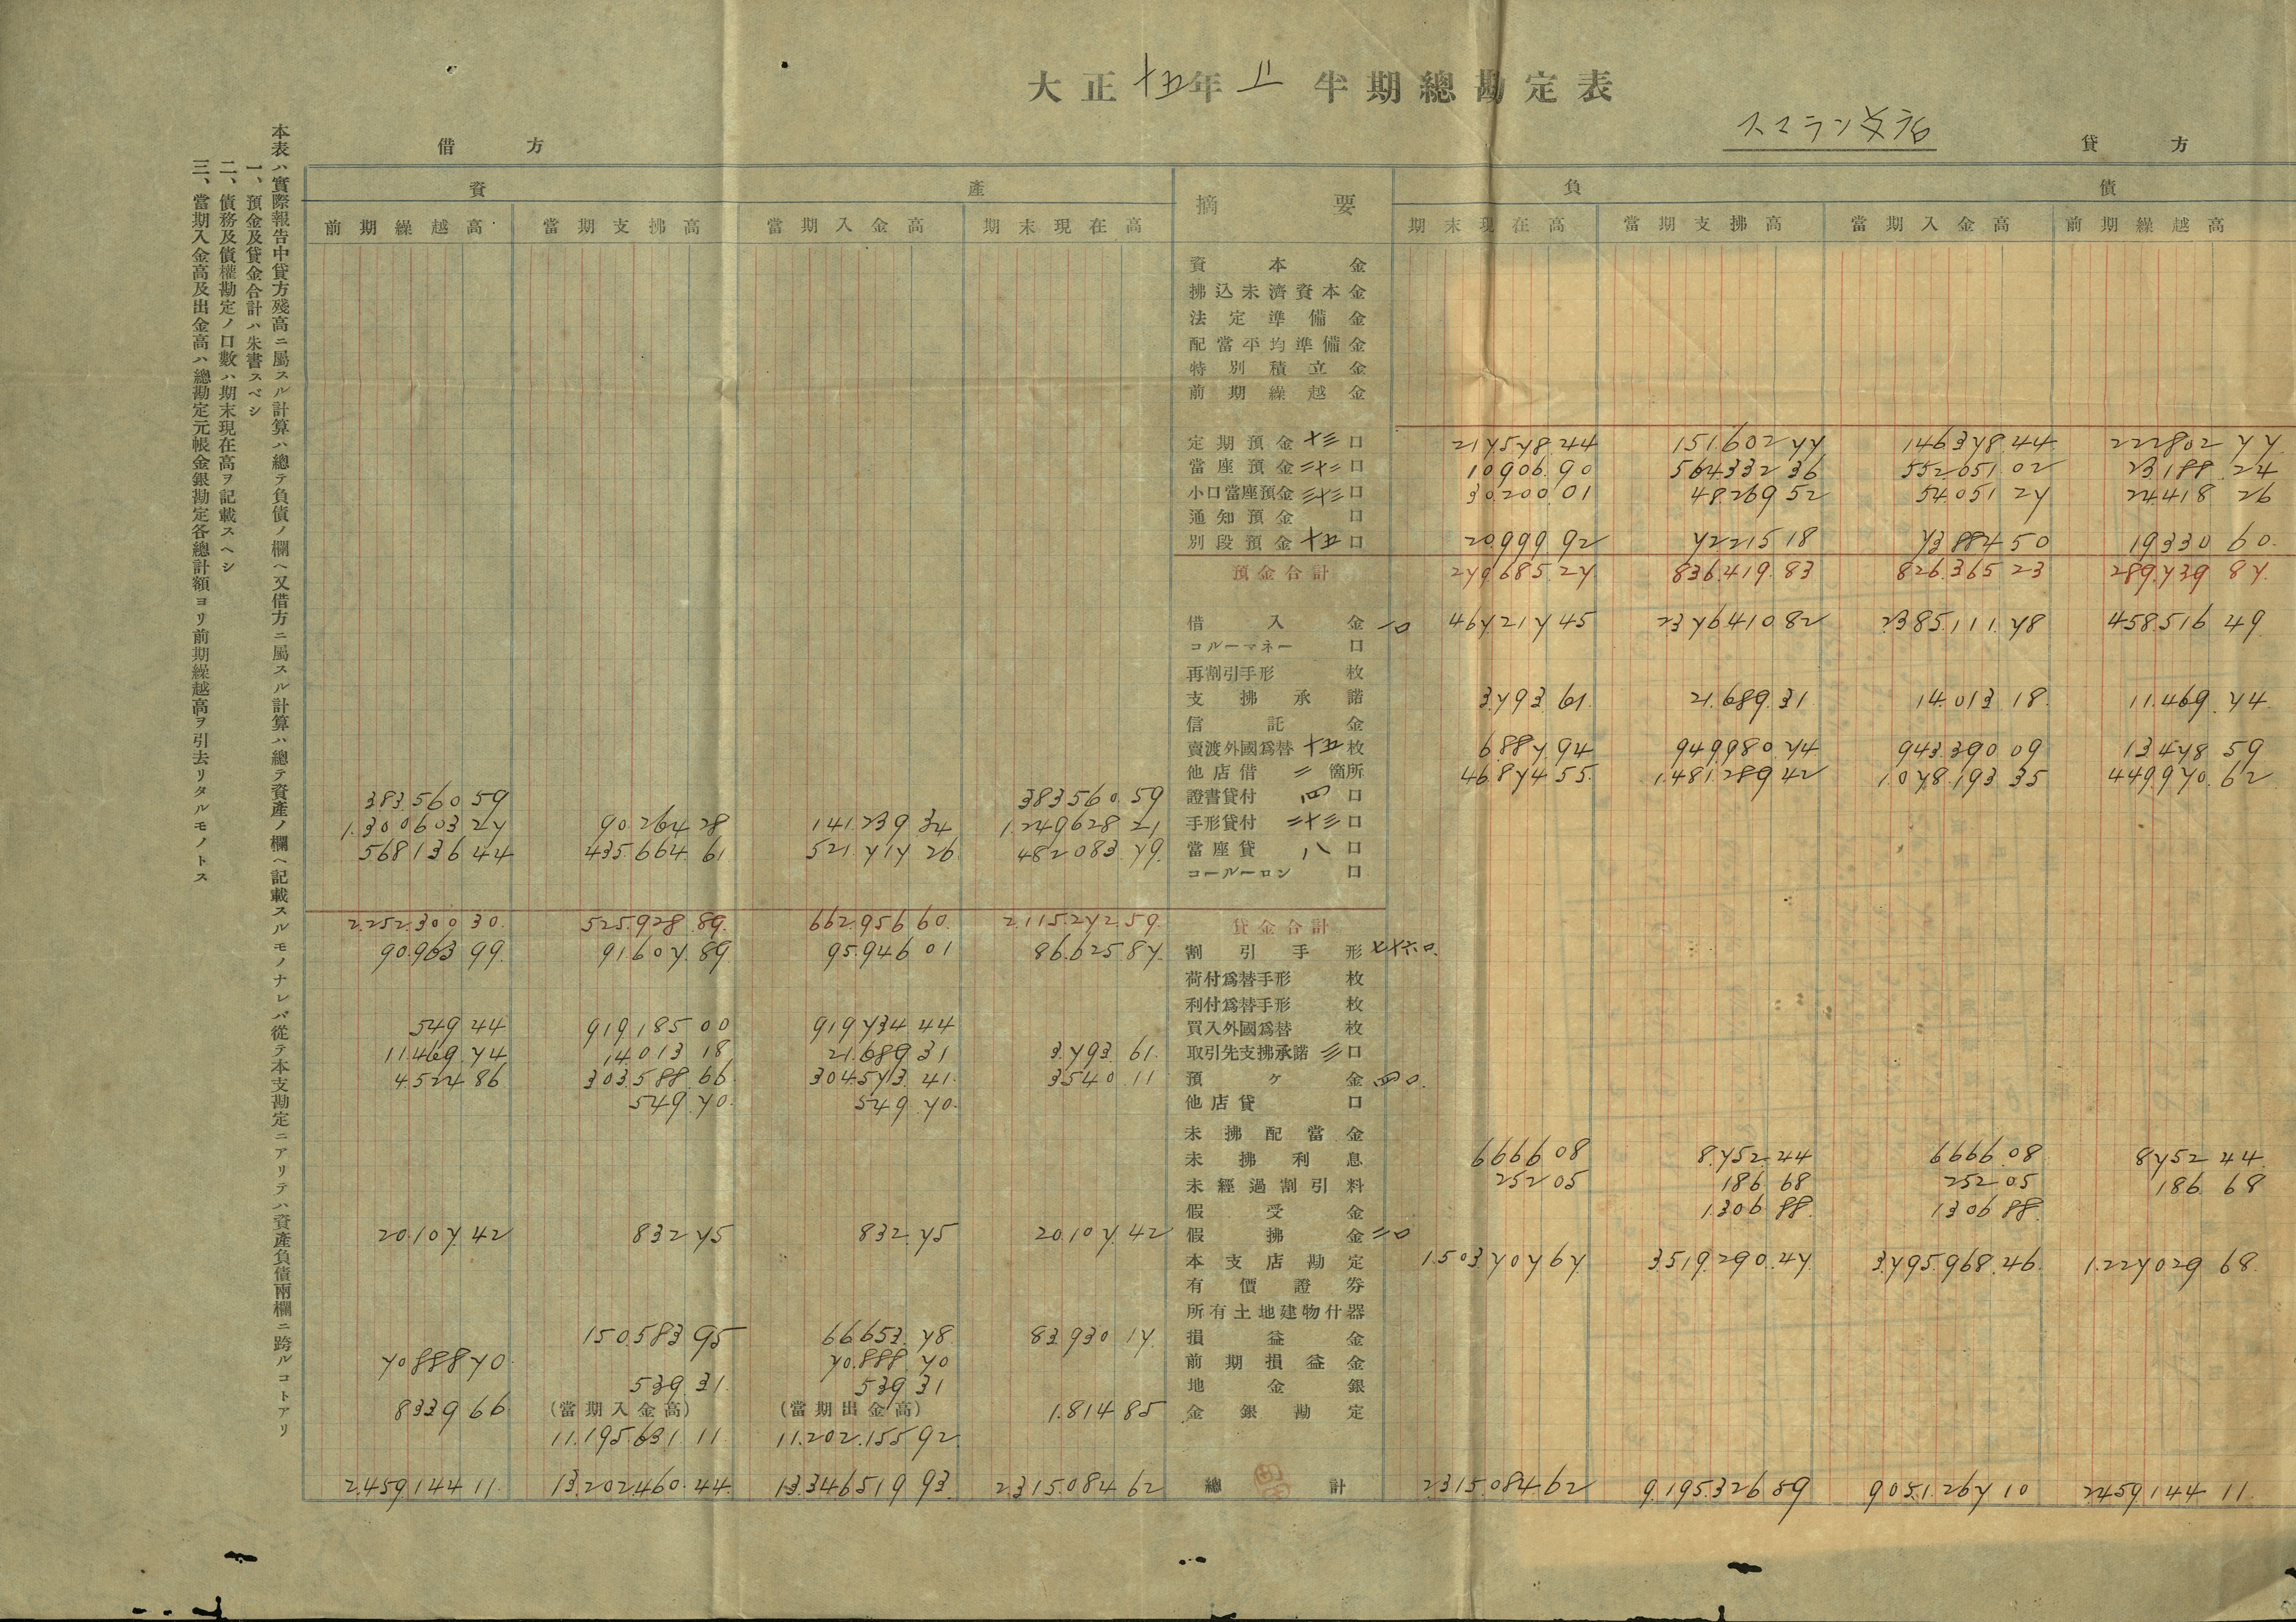 大正十五年上半期總勘定表
スマラン支店
借方 貸方
資產 摘要 負債
前期繰越高 當期支拂高 當期入金高 期末現在高 期末現在高 當期支拂高 當期入金高 前期繰越高
資本金
拂込未濟資本金
法定準備金
配當平均準備金
特別積立金
前期繰越金
定期預金 十三口 217,578.44 151,602.77 146,378.44 222,802.77
當座預金 二十二口 10,906.90 564,332.36 552,051.02 23,188.24
小口當座預金 三十三口 30,200.01 48,269.52 54,051.27 24,418.26
通知預金 口
別段預金 十五口 20,999.92 72,215.18 73,884.50 19,330.60
預金合計 279,685.27 836,419.83 826,365.23 289,739.87
借入金 二口 467,217.45 2,376,410.82 2,385,111.78 458,516.49
コルーマネー 口
再割引手形 枚
支拂承諾 3,793.61 21,689.31 14,013.18 11,469.74
信託金
賣渡外國爲替 十五枚 6,887.94 949,980.74 943,390.09 13,478.59
他店借 二箇所 46,874.55 1,481,289.42 1,078,193.35 449,970.62
383,560.59 383,560.59 證書貸付 四口
1,300,603.27 90,264.28 141,239.34 1,249,628.21 手形貸付 二十三口
568,136.44 435,664.61 521,717.26 482,083.79 當座貸 八口
コールーロン 口
2,252,300.30 525,928.89 662,956.60 2,115,272.59 貸金合計
90,963.99 91,607.89 95,946.01 86,625.87 割引手形 七十六口
荷付爲替手形 枚
利付爲替手形 枚
549.44 919,185.00 919,734.44 買入外國爲替 枚
11,469.74 14,013.18 21,689.31 3,793.61 取引先支拂承諾 三口
4,524.86 303,588.66 304,573.41 3,540.11 預ケ金 四口
549.70 549.70 他店貸 口
未拂配當金
未拂利息 6,666.08 8,752.44 6,666.08 8,752.44
未經過割引料 252.05 186.68 252.05 186.68
假受金 1,306.88 1,306.88
20,107.42 832.75 832.75 20,107.42 假拂金 二口
本支店勘定 1,503,707.67 3,519,290.47 3,795,968.46 1,227,029.68
有價證券
所有土地建物什器
150,583.95 66,653.78 83,930.17 損益金
70,888.70 70,888.70 前期損益金
539.31 539.31 地金銀
8,339.66 (當期入金高) (當期出金高) 1,814.85 金銀勘定
11,195,631.11 11,202,155.92
2,459,144.11 13,202,460.44 13,346,519.93 2,315,084.62 總計 2,315,084.62 9,195,326.59 9,051,267.10 2,459,144.11
本表ハ實際報告中貸方殘高ニ屬スル計算ハ總テ負債ノ欄ヘ又借方ニ屬スル計算ハ總テ資產ノ欄ヘ記載スルモノナレバ從テ本支勘定ニアリテハ資產負債兩欄ニ跨ルコトアリ
一、預金及貸金合計ハ朱書スベシ
二、債務及債權勘定ノ口數ハ期末現在高ヲ記載スヘシ
三、當期入金高及出金高ハ總勘定元帳金銀勘定各總計額ヨリ前期繰越高ヲ引去リタルモノトス